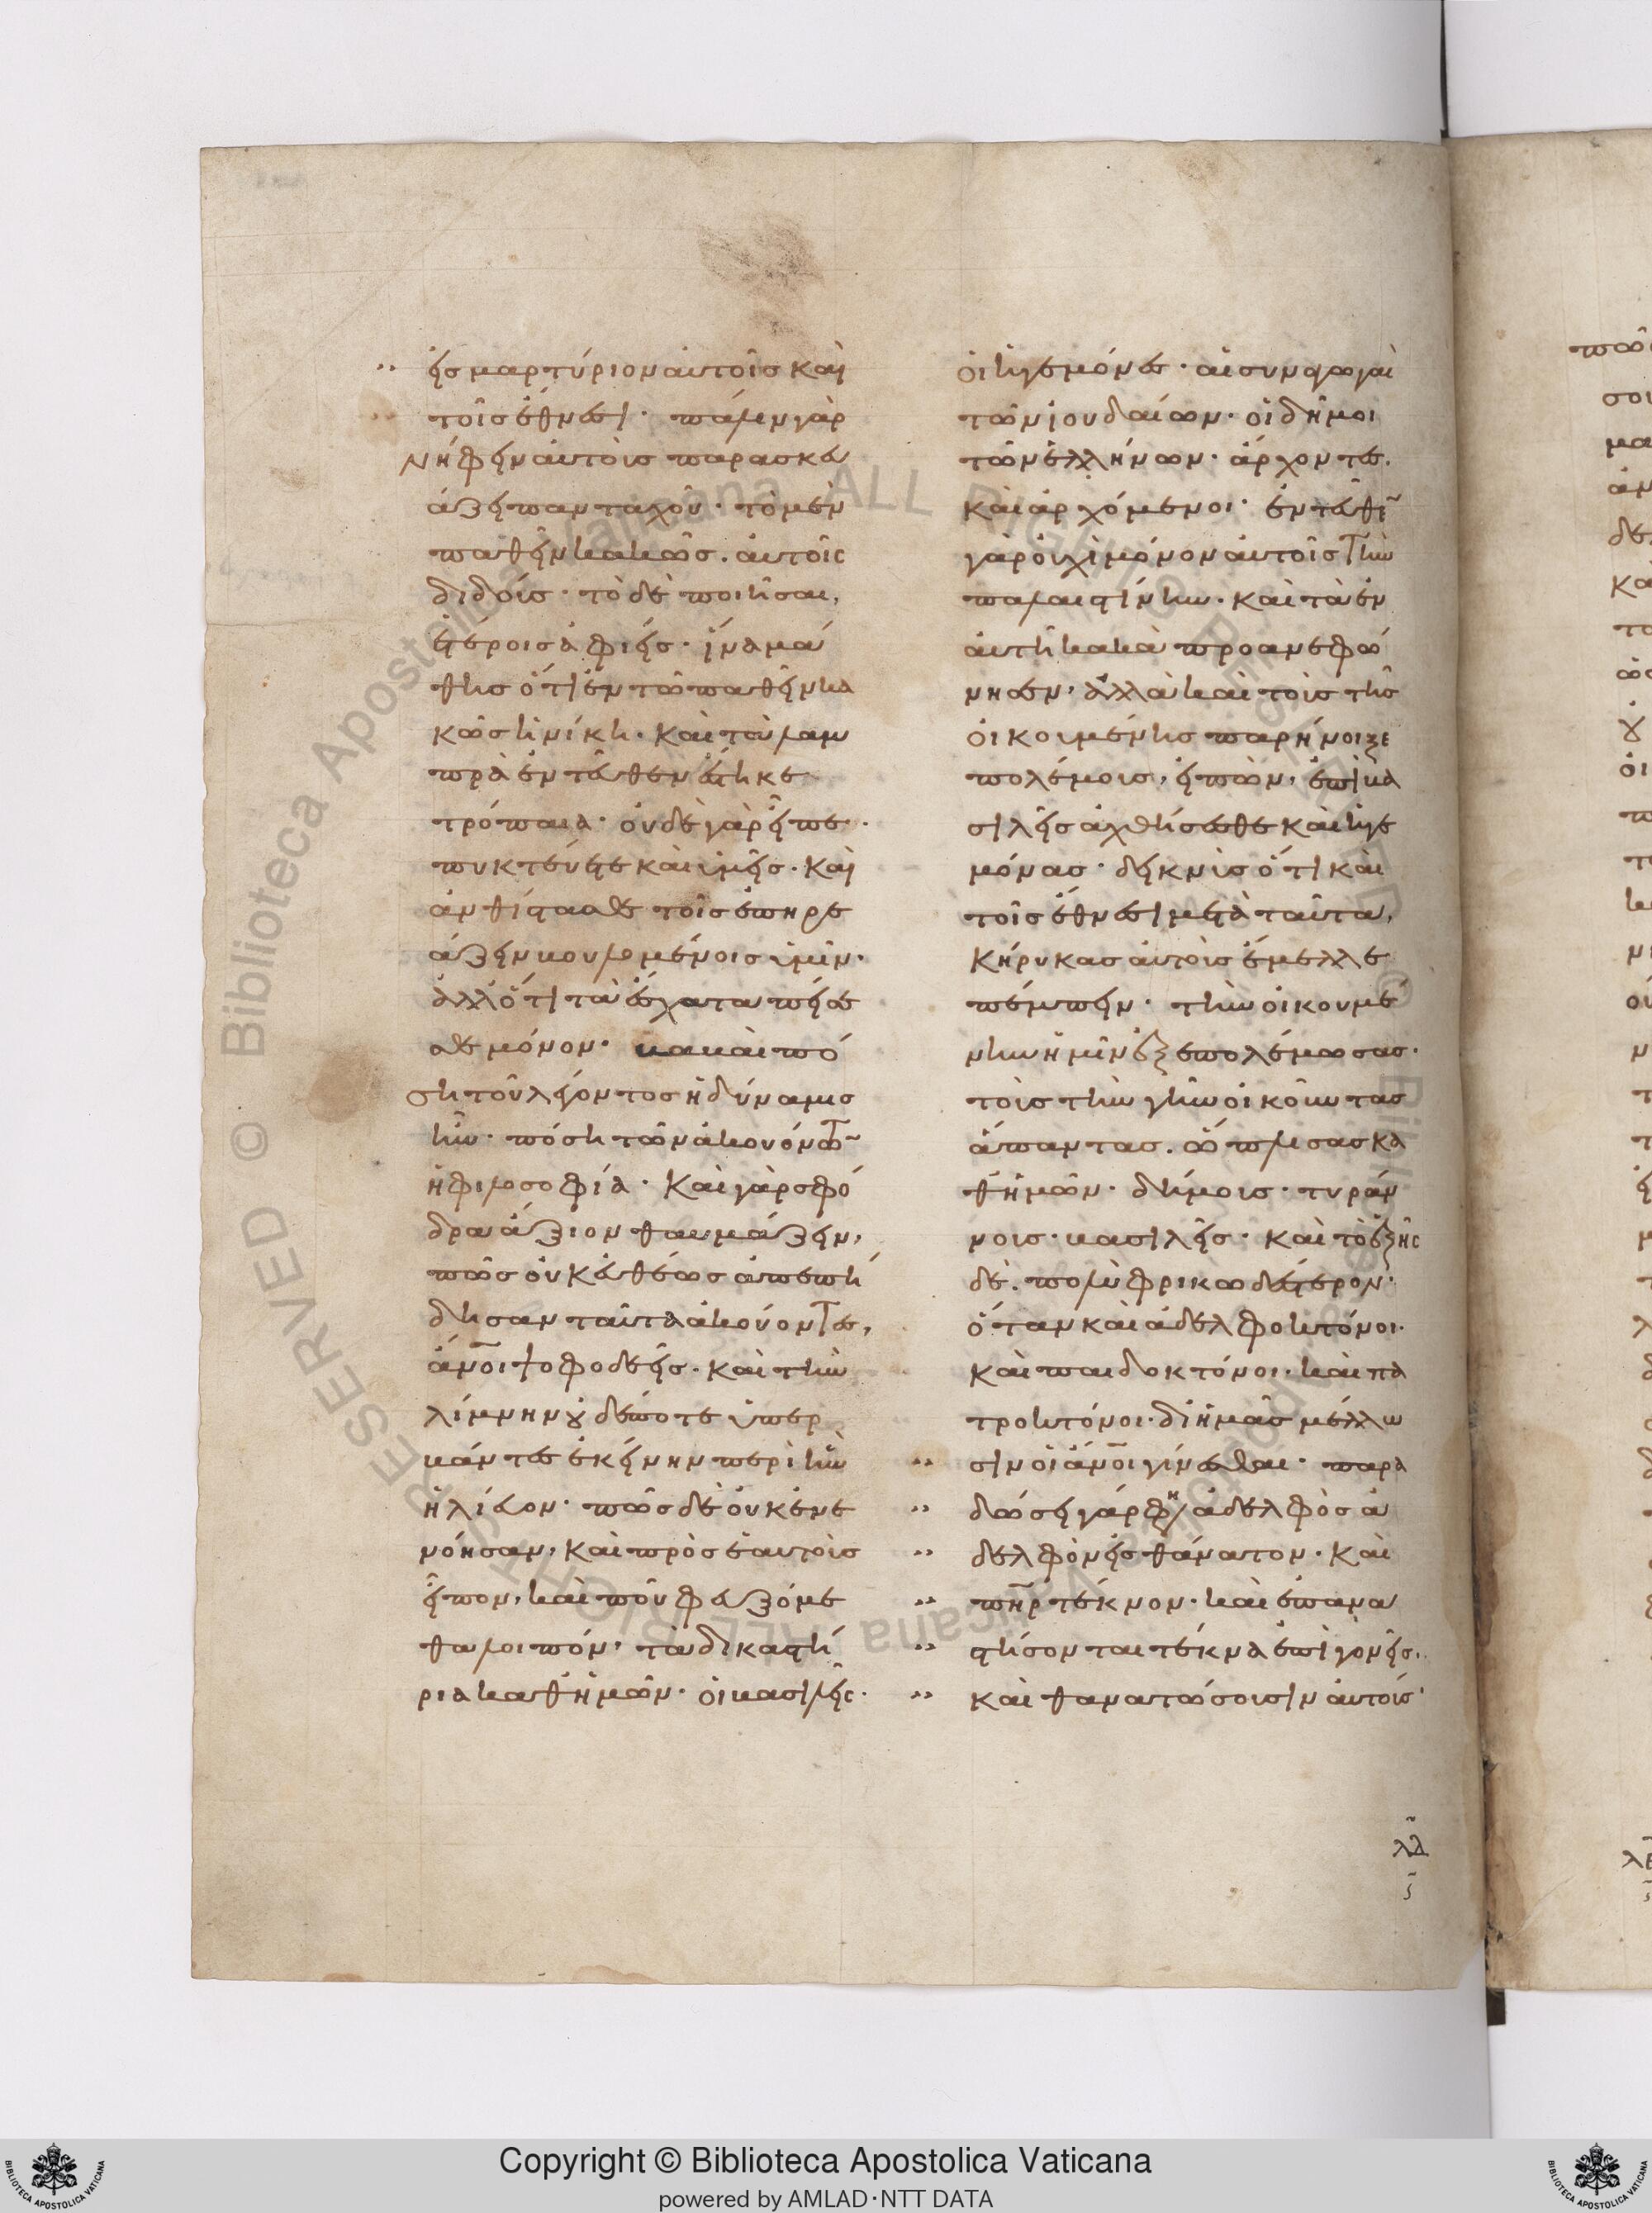 εἰς μαρτύριον αὐτοῖς καὶ
τοῖς ἔθνεσι· πάλιν γὰρ
νήφειν αὐτοὺς παρασκευ
άζει πανταχοῦ· τὸ μὲν
παθεῖν κακῶς. αὐτοῖς
διδούς· τὸ δὲ ποιῆσαι,
ἑτέροις ἀφιείς· ἵνα μά
θῃς ὅτι ἐν τῶ παθεῖν κα
κῶς ἡ νίκη· καὶ τὰ λαμ
πρὰ ἐντεῦθεν ἕστηκε
τρόπαια· οὐδὲ γὰρ εἶπε·
πυκτεύετε καὶ ὑμεῖς· καὶ
ἀνθίστασθε τοῖς ἐπηρε
άζειν βουλομένοις ὑμῖν·
ἀλλ' ὅτι τὰ ἔσχατα πείσε
σθε μόνον· βαβαὶ πό
ση τοῦ λέγοντος ἡ δύναμις
ἦν· πόση τῶν ἀκουόντων
ἡ φιλοσοφία· καὶ γὰρ σφό
δρα ἄξιον θαυμάζειν,
πῶς οὐκ εὐθέως ἀπεπή
δησαν ταῦτα ἀκούοντες,
ἄνοι ψοφοδεεῖς· καὶ τὴν
λίμνην οὐδέποτε ὑπερ
βάντες ἐκείνην περὶ ἣν
ἡλίευον· πῶς δὲ οὐκ ἐνε
νόησαν, καὶ πρὸς ἑαυτοὺς
εἶπον, καὶ ποῦ φευξόμε
θα λοιπόν, τὰ δικαστή
ρια καθ' ἡμῶν· οἱ βασιλεῖς·
οἱ ἡγεμόνες· αἱ συναγωγαὶ
τῶν ἰουδαίων· οἱ δῆμοι
τῶν ἑλλήνων· ἄρχοντες.
καὶ ἀρχόμενοι· ἐντεῦθεν
γὰρ οὐχὶ μόνον αὐτοῖς τὴν
παλαιστίνην· καὶ τὰ ἐν
αὐτῇ κακὰ προανεφώ
νησεν, ἀλλὰ καὶ τοὺς τῆς
οἰκουμένης παρήνοιξε
πολέμους, εἰπὼν, ἐπὶ βα
σιλεῖς ἀχθήσεσθε καὶ ἡγε
μόνας· δεικνὺς ὅτι καὶ
τοῖς ἔθνεσι μετὰ ταῦτα,
κήρυκας αὐτοὺς ἔμελλε
πέμπειν· τὴν οἰκουμέ
νην ἡμῖν ἐξεπολέμωσας·
τοὺς τὴν γῆν οἰκοῦντας
ἅπαντας. ὥπλισας κα
θ' ἡμῶν· δήμους· τυράν
νους· βασιλεῖς· καὶ τὸ ἑξῆς
δὲ. πολὺ φρικωδέστερον·
ὅταν καὶ ἀδελφοκτόνοι·
καὶ παιδοκτόνοι· καὶ πα
τροκτόνοι· δι' ἡμᾶς μέλλω
σιν οἱ ἄνοι γίνεσθαι· παρα
δώσει γάρ φη ἀδελφὸς ἀ
δελφὸν εἰς θάνατον· καὶ
πηρ τέκνον· καὶ ἐπανα
στήσονται τέκνα ἐπὶ γονεῖς.
καὶ θανατώσουσιν αὐτούς·
λδ
Copyright © Biblioteca Apostolica Vaticana
powered by AMLAD·NTT DATA